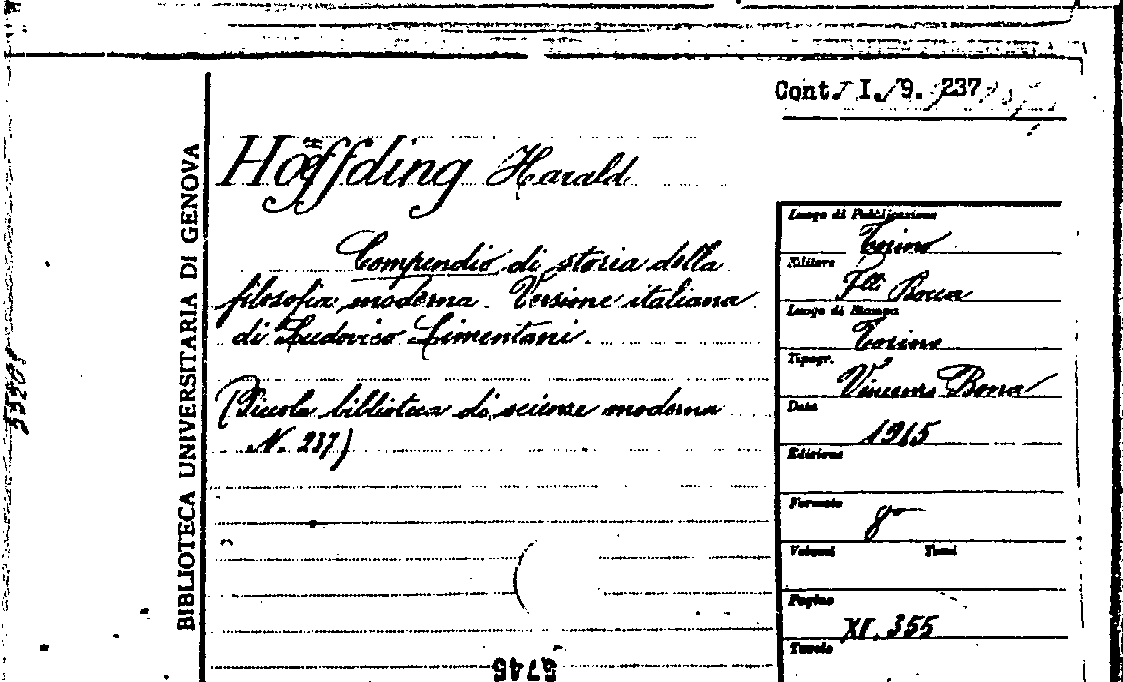 Cont. I. 9. 237
BIBLIOTECA UNIVERSITARIA DI GENOVA
Höffding Harald
Compendio di storia della
filosofia moderna. Versione italiana
di Ludovico Limentani.
(Piccola biblioteca di scienze moderne
N. 237)
Luogo di Pubblicazione
Torino
Editore
F.lli Bocca
Luogo di Stampa
Torino
Tipogr.
Vincenzo Bona
Data
1915
Edizione
Formato
8°
Volumi Tomi
Pagine
XI, 355
Tavole